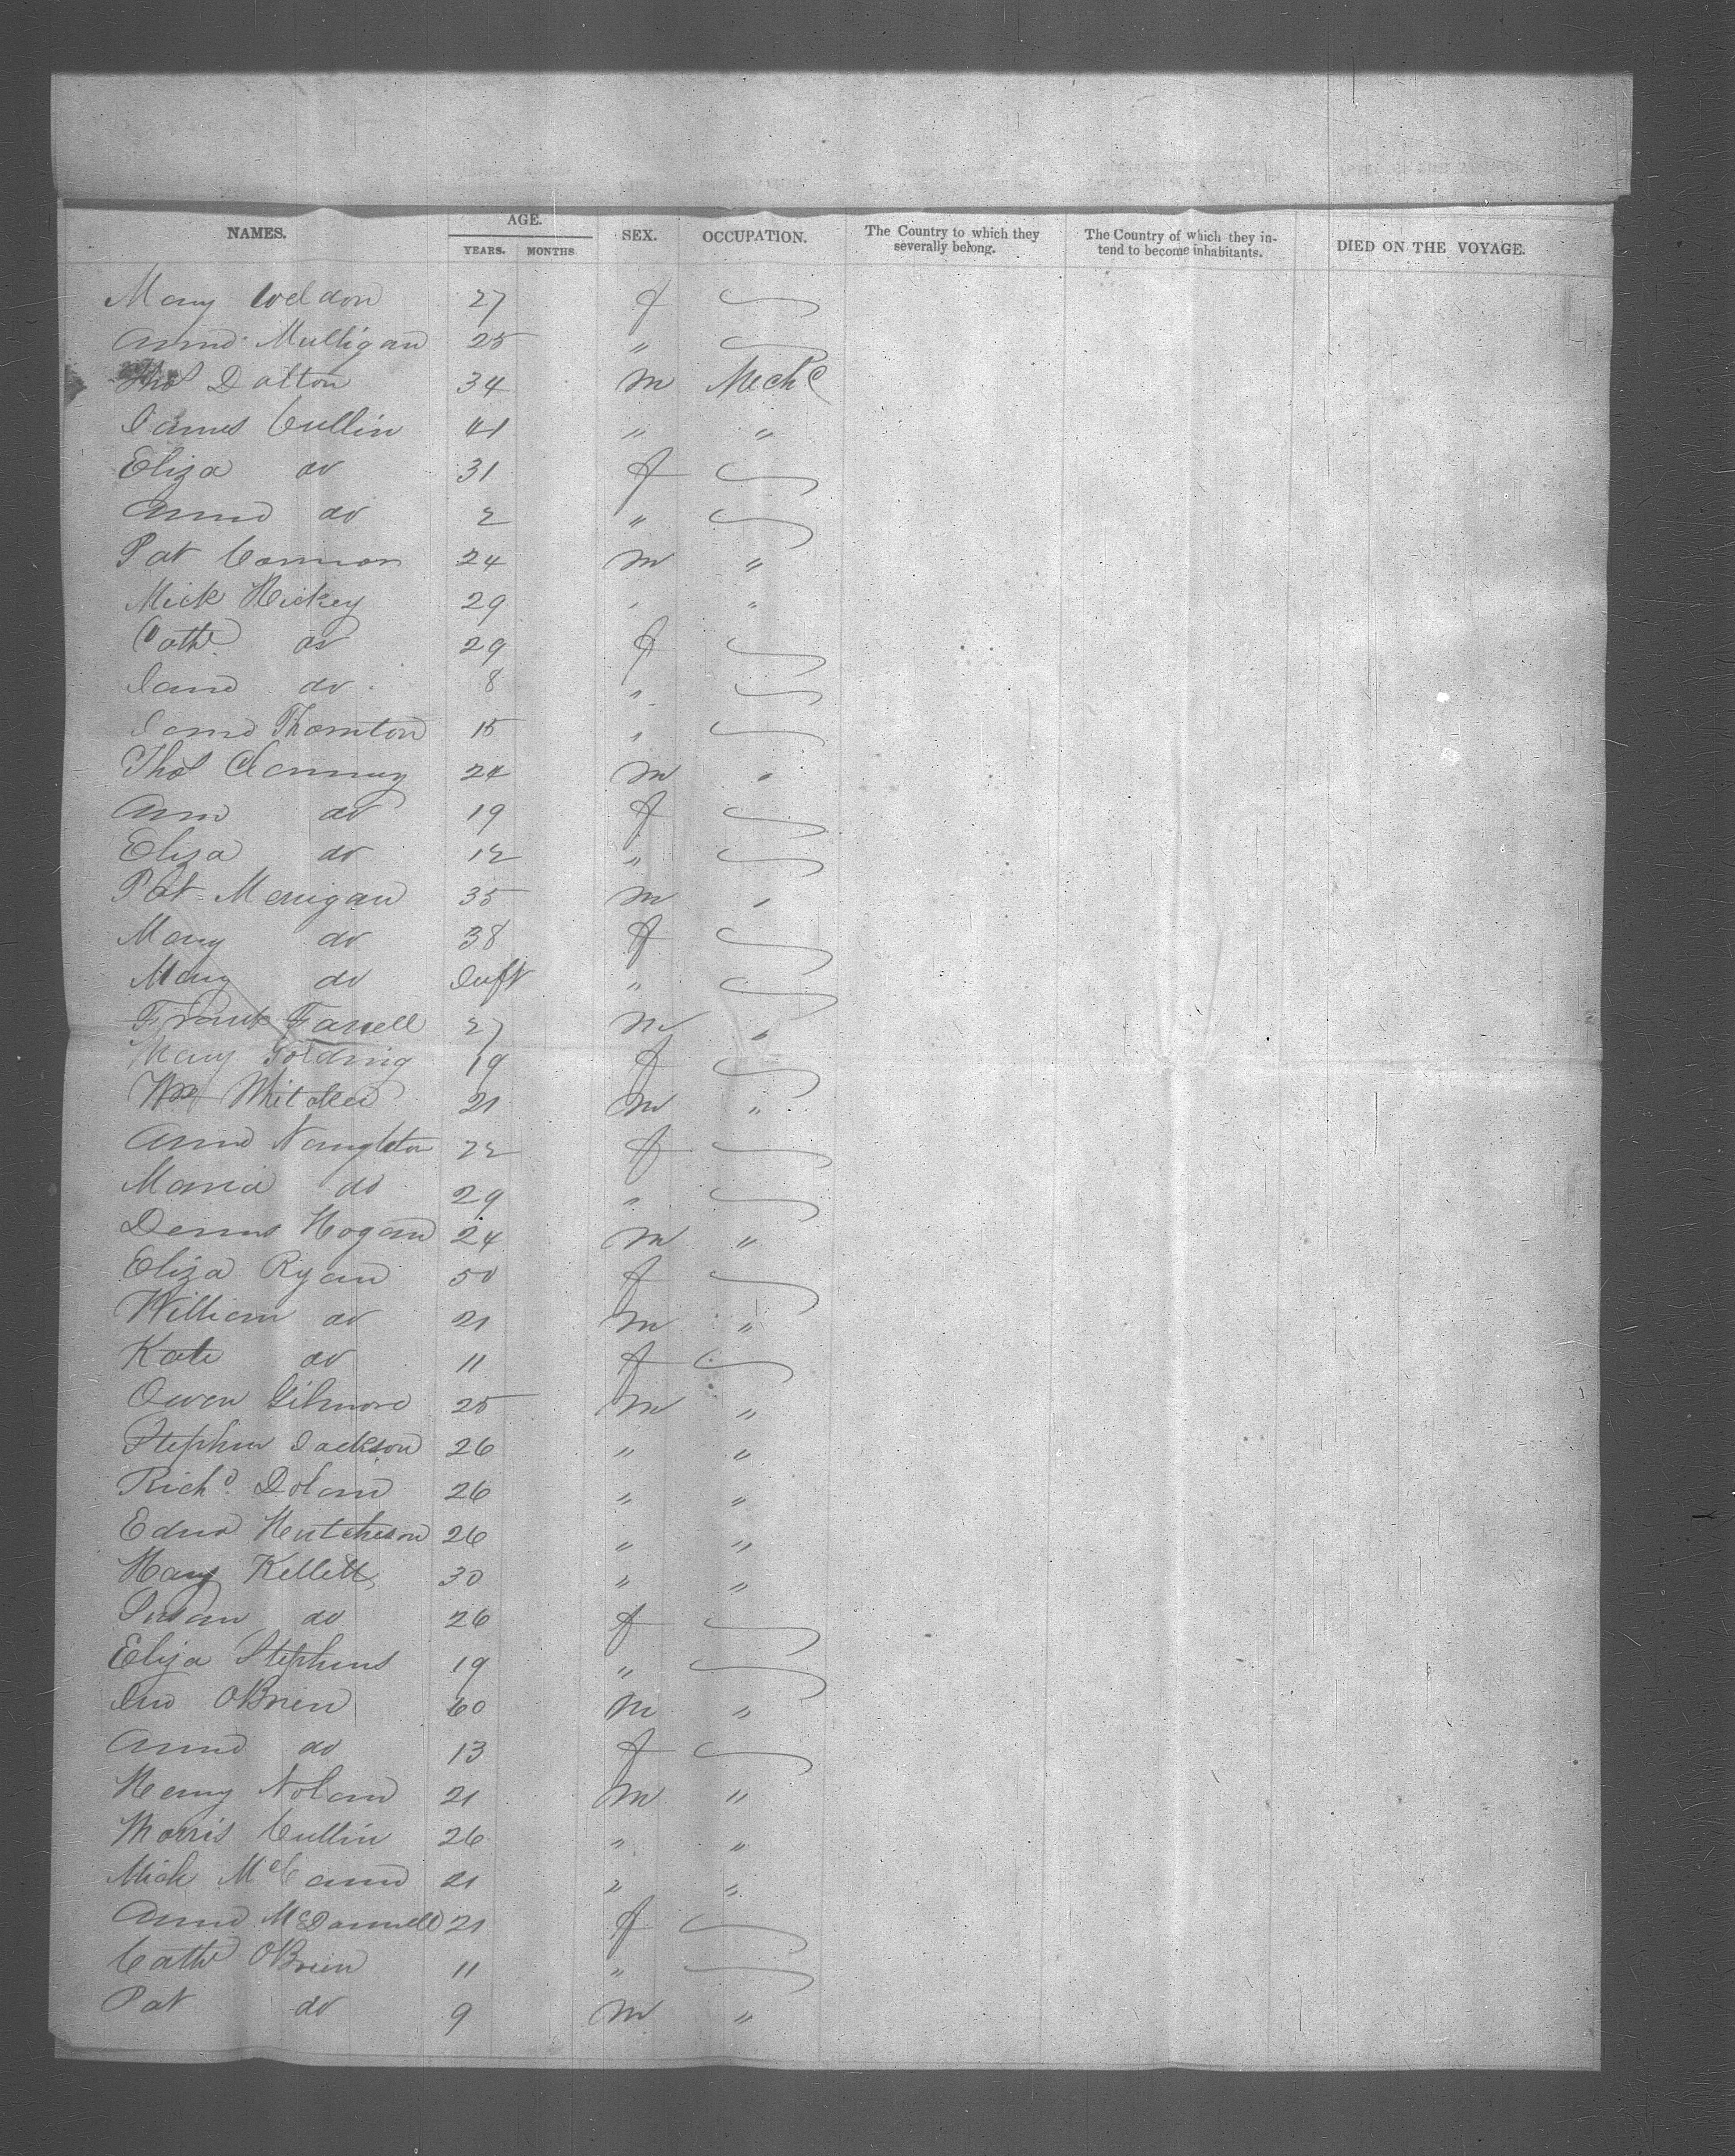 NAMES. AGE. SEX. OCCUPATION. The Country to which they severally belong. The Country of which they intend to become inhabitants. DIED ON THE VOYAGE.
YEARS. MONTHS
Mary Weldon 27 f
Anne Mulligan 25 "
Thos Dalton 34 m Mechc
James Cullin 41 " "
Eliza do 31 f
Anne do 2 "
Pat Connor 24 m "
Mick Hickey 29 " "
Cathe do 29 f
Jane do 8 "
Jane Thornton 15 "
Thos 24 m "
Ann do 19 f
Eliza do 12 "
Pat Merrigan 35 m "
Mary do 38 f
Mary do Inft "
Frank Farrell 27 m "
Mary Golding 19 f
Wm 21 m "
Anne Naughton 22 f
Maria do 29 "
Dennis Hogan 24 m "
Eliza Ryan 50 f
William do 21 m "
Kate do 11 f
Owen Gilmore 25 m "
Stephen Jackson 26 " "
Richd. Dolan 26 " "
Edwd Hutcheson 26 " "
Kellett 30 " "
Susan do 26 f
Eliza Stephens 19 "
Jno OBrien 60 m "
Anne do 13 f
Henry Nolan 21 m "
Morris Cullin 26 " "
Mick McCann 21 " "
Anne McDonnell 21 f
Cathe OBrien 11 "
Pat do 9 m "